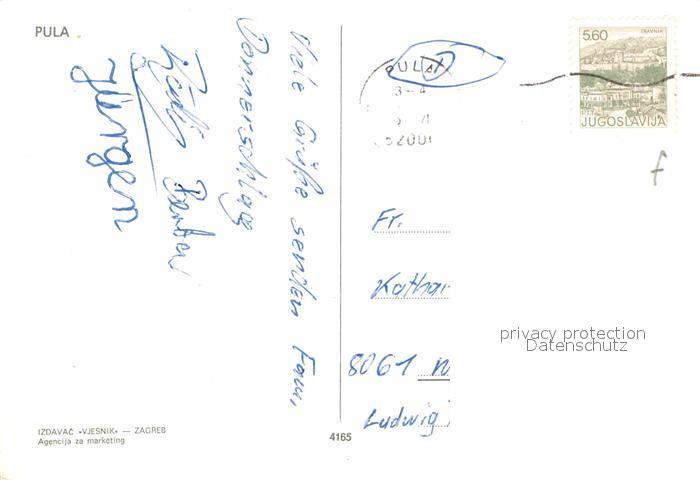 PULA
Viele Grüße senden Fam.
Donnerschlag
Jürgen
IZDAVAČ «VJESNIK» — ZAGREB
Agencija za marketing
4165
PULA
3-4
52001
5.60
TRAVNIK
JUGOSLAVIJA
f
Fr.
Kathar
8061
Ludwig
privacy protection
Datenschutz